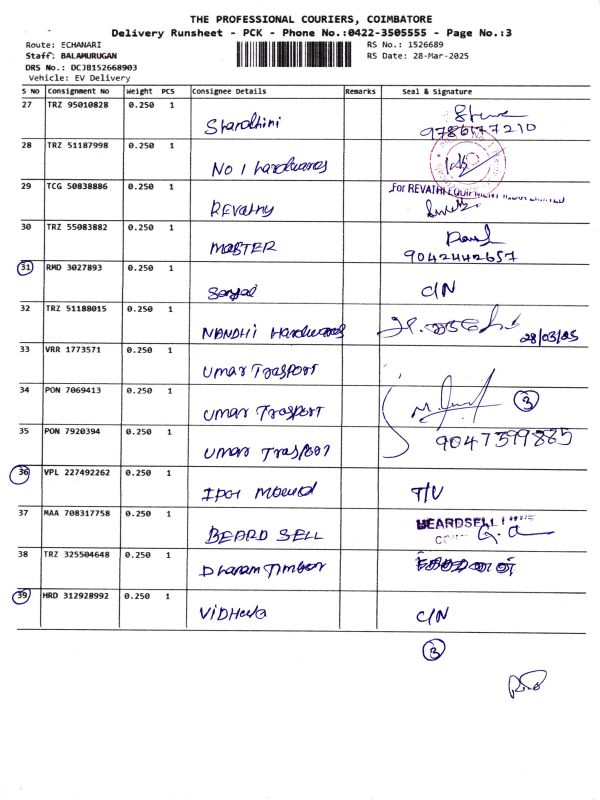 THE PROFESSIONAL COURIERS, COIMBATORE
Delivery Runsheet - PCK - Phone No.:0422-3505555 - Page No.:3
Route: ECHANARI
RS No.: 1526689
Staff: BALAMURUGAN
RS Date: 28-Mar-2025
DRS No.: DCJB152668903
Vehicle: EV Delivery
S No Consignment No Weight PCS Consignee Details Remarks Seal & Signature
27 TRZ 95010828 0.250 1
Shardhini
9786177210
28 TRZ 51187998 0.250 1
No 1 hardwares
29 TCG 50838886 0.250 1
For REVATHI EQUIPMENT INDIA LIMITED
REvathy
30 TRZ 55083882 0.250 1
MASTER
9042442657
31 RMD 3027893 0.250 1
Sanjai C/N
32 TRZ 51188015 0.250 1
NANDHI Hardwares 28/03/25
33 VRR 1773571 0.250 1
Umar TrasPORT
34 PON 7069413 0.250 1
Umar Trasport 3
35 PON 7920394 0.250 1
9047599885
Umar Trasport
36 VPL 227492262 0.250 1
T/V
37 MAA 708317758 0.250 1
BEARDSELL
BEARD SELL
38 TRZ 325504648 0.250 1
Dharam Timber
39 HRD 312928992 0.250 1
VIDHeya C/N
3